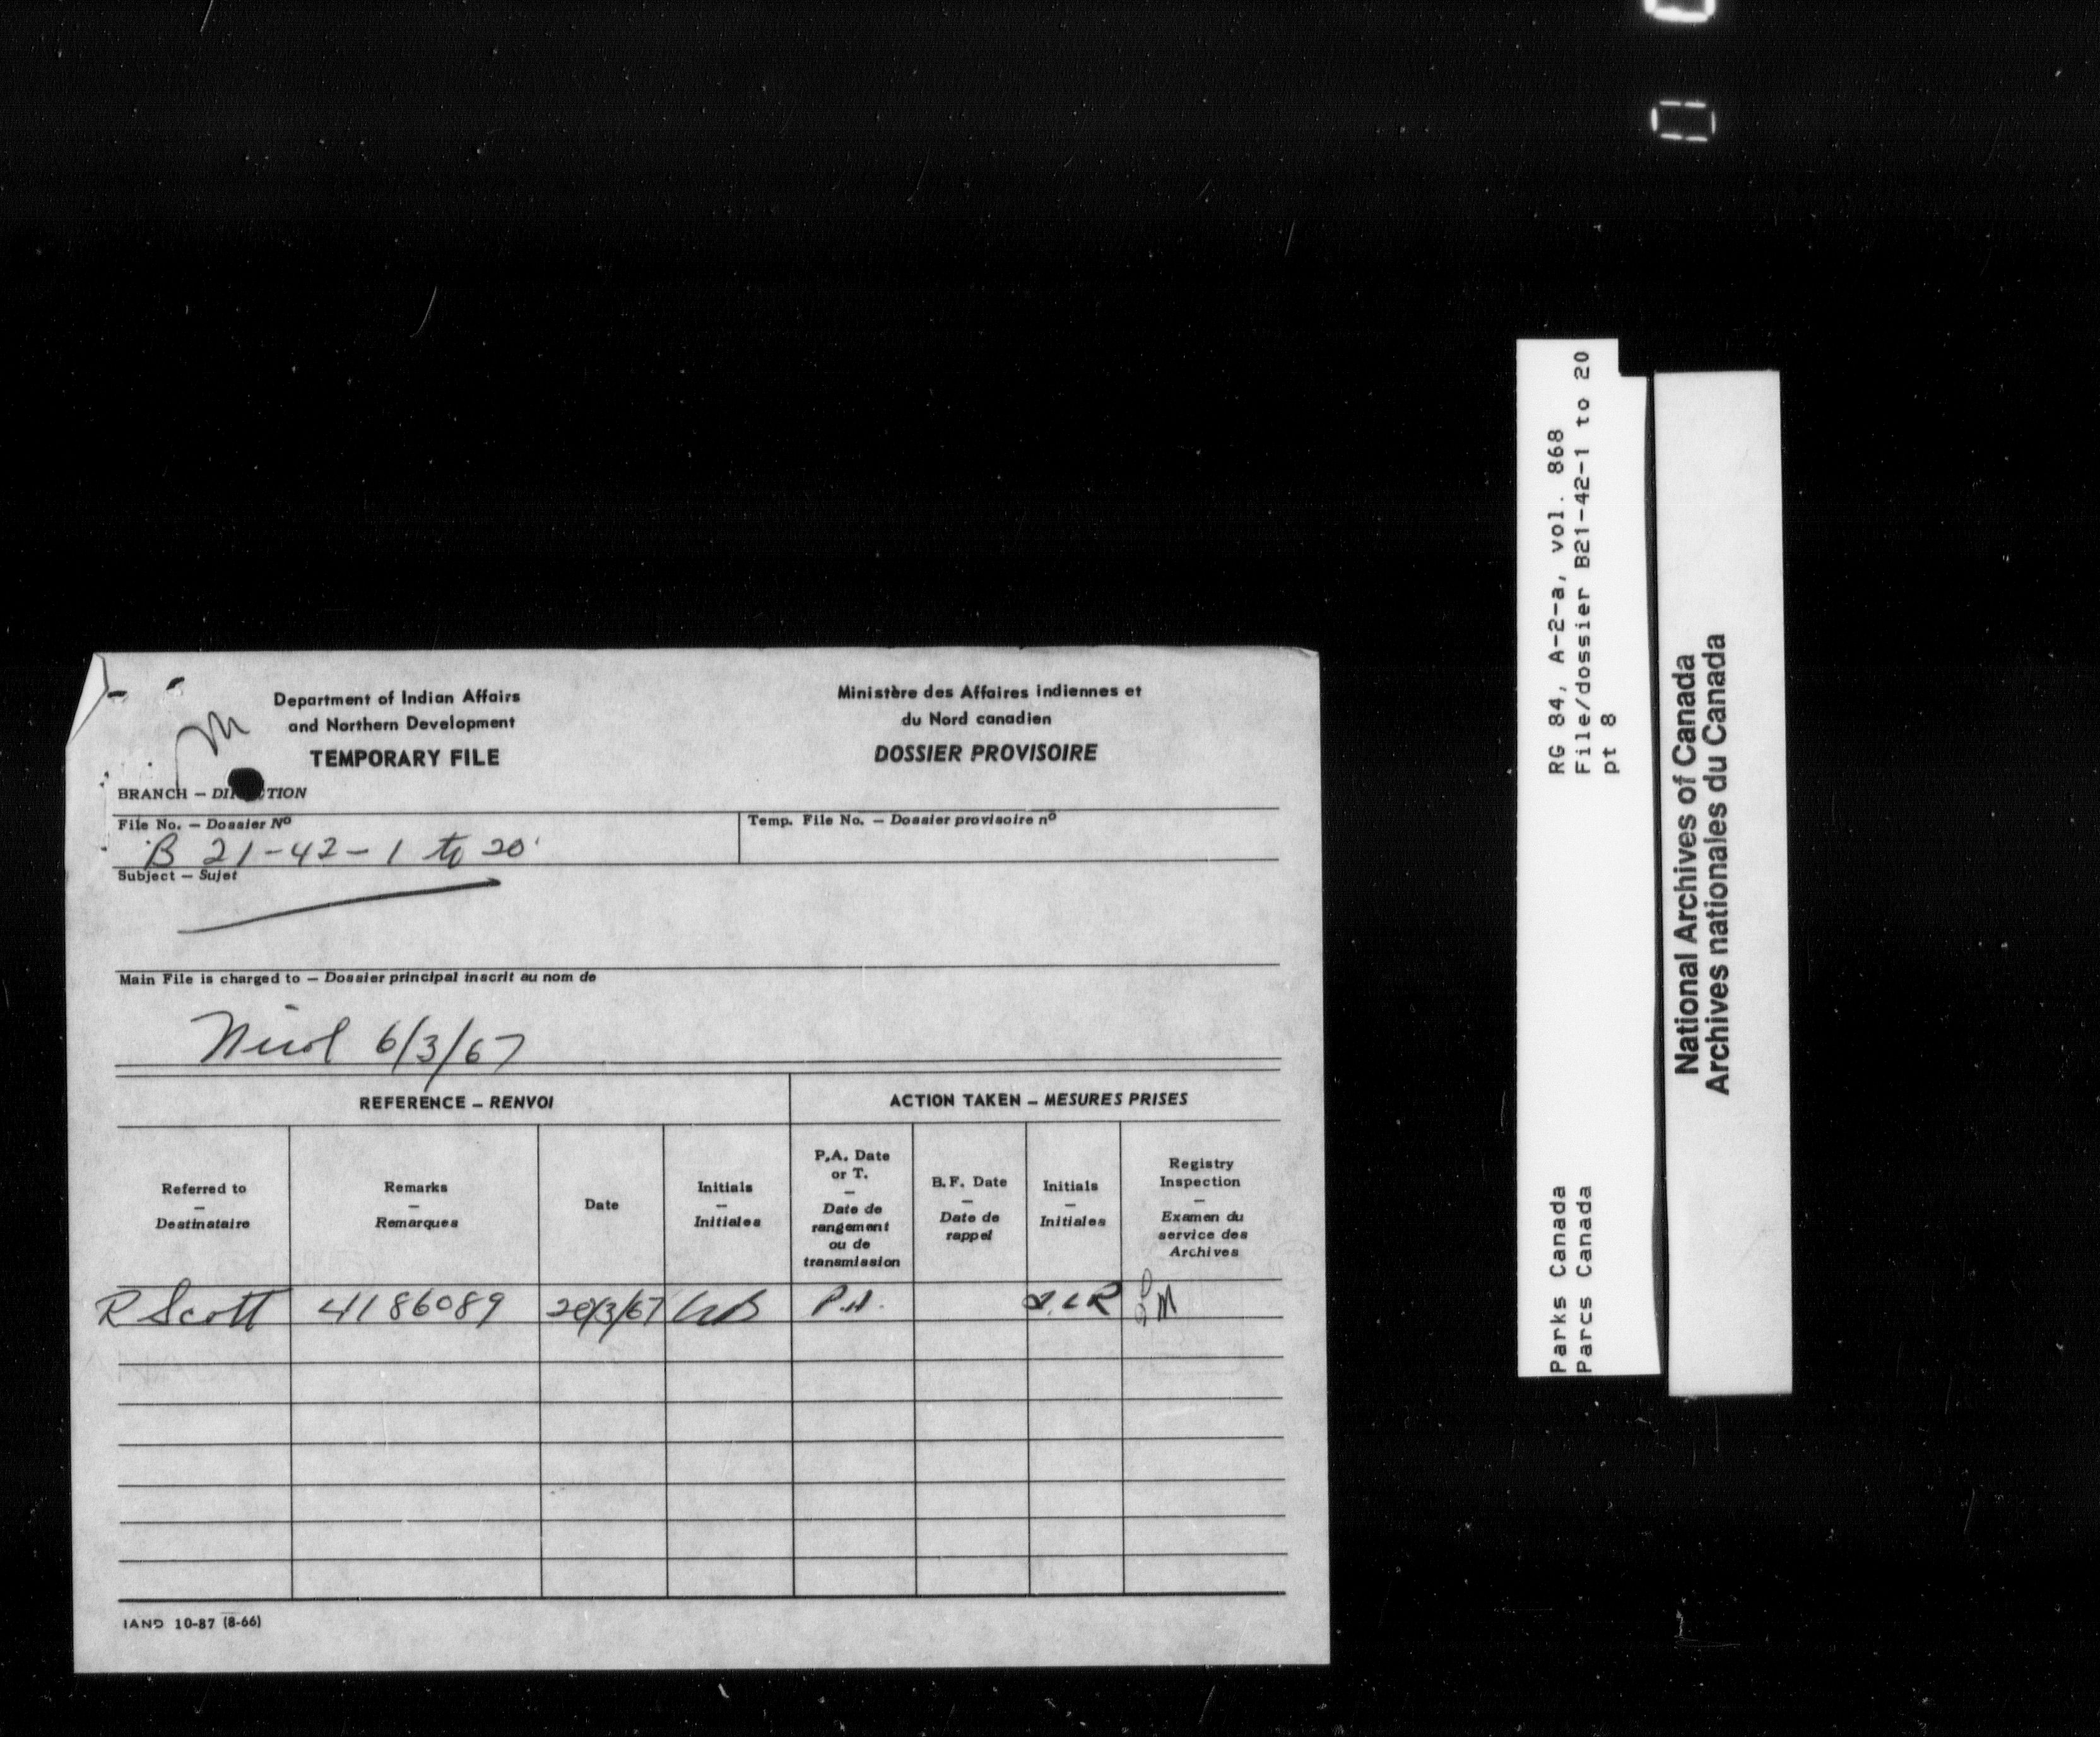 Department of Indian Affairs
and Northern Development
TEMPORARY FILE
Ministère des Affaires indiennes et
du Nord canadien
DOSSIER PROVISOIRE
M
BRANCH – DI TION
File No. – Dossier Nº
B 21-42-1 to 20
Temp. File No. – Dossier provisoire nº
Subject – Sujet
Main File is charged to – Dossier principal inscrit au nom de
Nicol 6/3/67
REFERENCE – RENVOI
ACTION TAKEN – MESURES PRISES
Referred to
–
Destinataire
Remarks
–
Remarques
Date
Initials
–
Initiales
P.A. Date
or T.
–
Date de
rangement
ou de
transmission
B.F. Date
–
Date de
rappel
Initials
–
Initiales
Registry
Inspection
–
Examen du
service des
Archives
R Scott 4186089 20/3/67 P.A.
IAND 10-87 (8-66)
RG 84, A-2-a, vol. 868
File/dossier B21-42-1 to 20
pt 8
Parks Canada
Parcs Canada
National Archives of Canada
Archives nationales du Canada